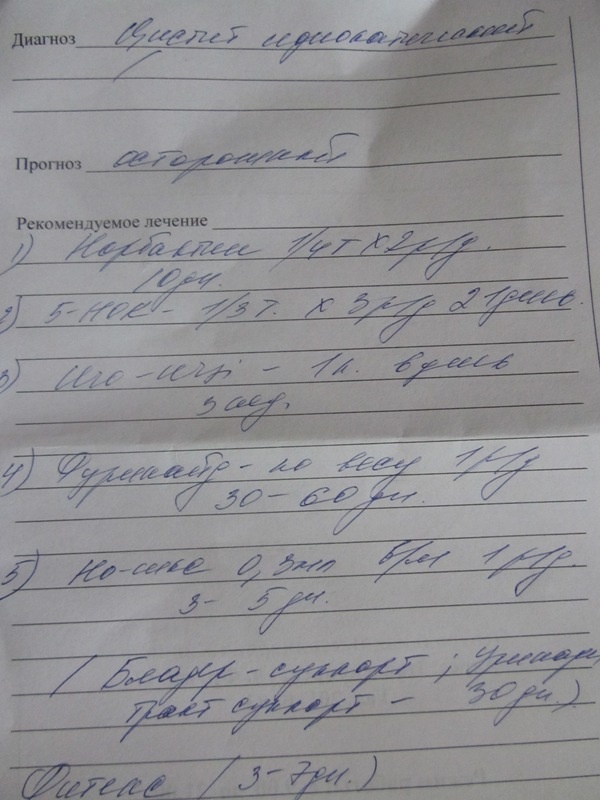 Диагноз Цистит идиопатический
Прогноз осторожный
Рекомендуемое лечение
1) Норбактин 1/4т х 2р/д.
10дн.
2) 5-НОК - 1/3т. х 3р/д 21день.
3) - 1к. в день
3 нед.
4) Фуринайд - по весу 1р/д
30-60 дн.
5) Но-шпа 0,3мл в/м 1р/д.
3-5дн.
(Бладер-суппорт; Уринари
тракт суппорт - 30дн.)
Фитэлс (3-7дн.)